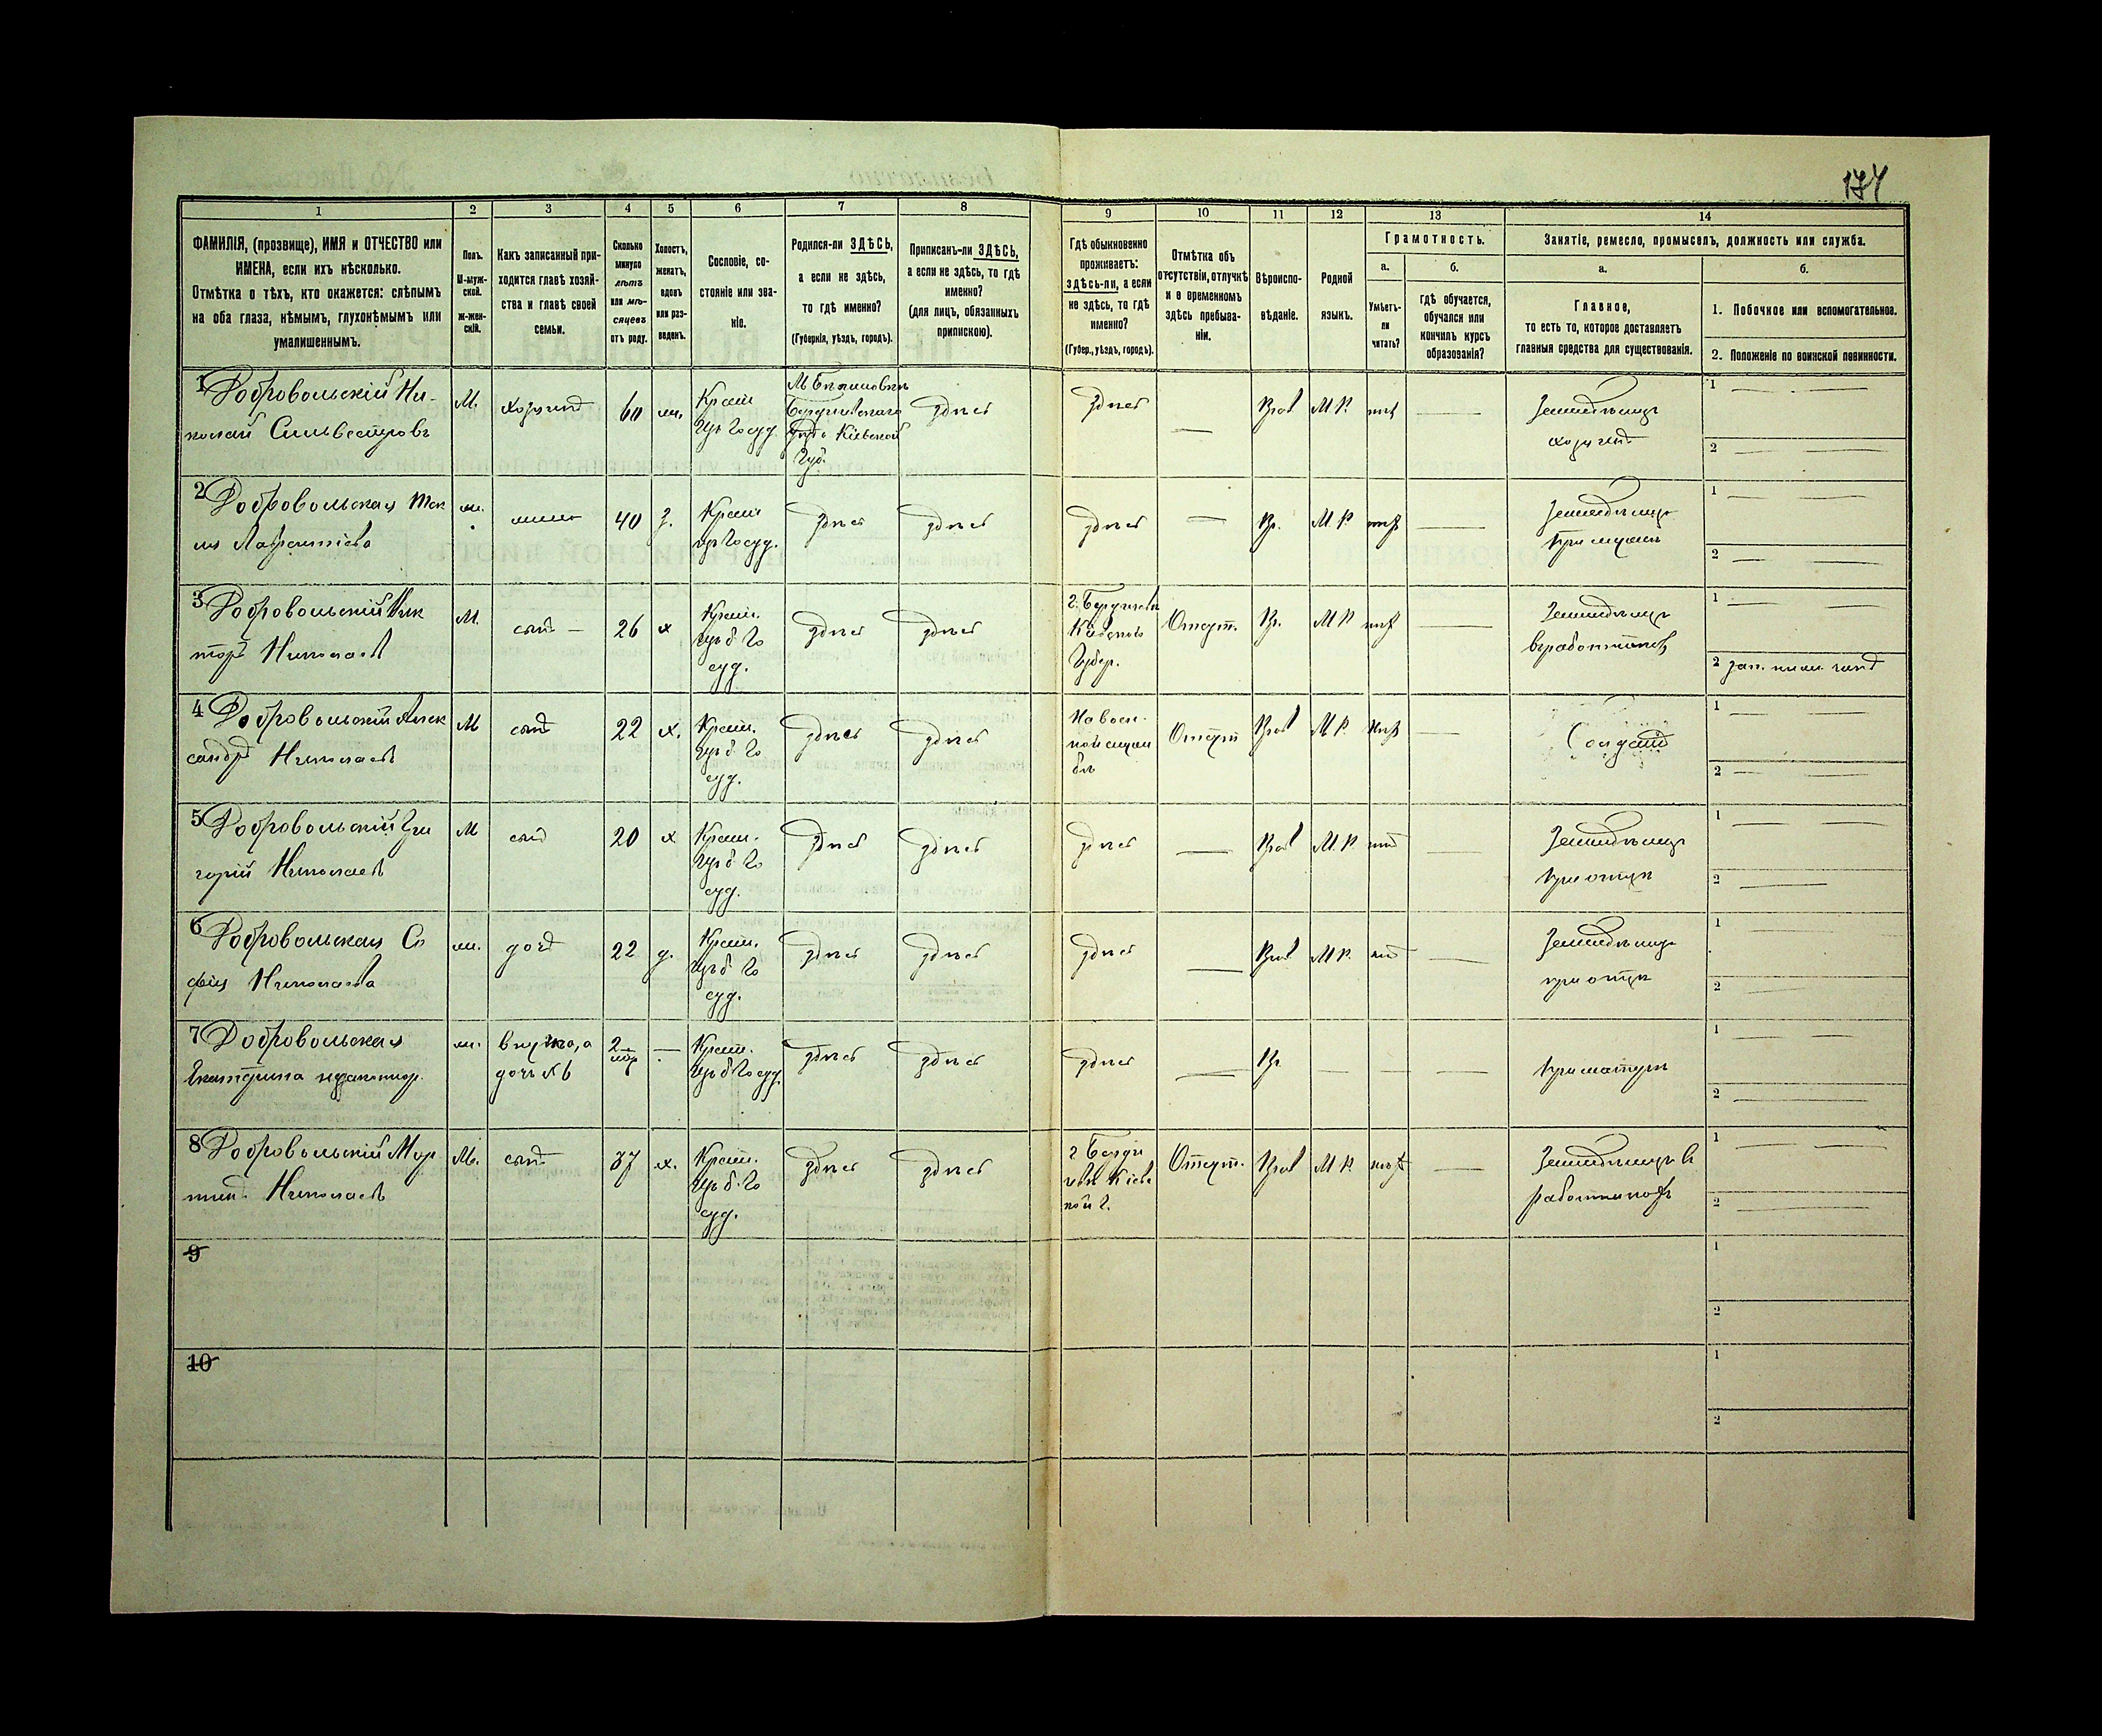 174
1 2 3 4 5 6 7 8 9 10 11 12 13 14
ФАМИЛІЯ, (прозвище), ИМЯ и ОТЧЕСТВО или
ИМЕНА, если ихъ нѣсколько.
Отмѣтка о тѣхъ, кто окажется: слѣпымъ
на оба глаза, нѣмымъ, глухонѣмымъ или
умалишеннымъ.
Полъ.
М-муж-
ской.
ж-жен-
скій.
Какъ записанный при-
ходится главѣ хозяй-
ства и главѣ своей
семьи.
Сколько
минуло
лѣтъ
или мѣ-
сяцевъ
отъ роду.
Холостъ,
женатъ,
вдовъ
или раз-
веденъ.
Сословіе, со-
стояніе или зва-
ніе.
Родился-ли ЗДѢСЬ,
а если не здѣсь,
то гдѣ именно?
(Губернія, уѣздъ, городъ).
Приписанъ-ли ЗДѢСЬ,
а если не здѣсь, то гдѣ
именно?
(для лицъ, обязанныхъ
припискою).
Гдѣ обыкновенно
проживаетъ:
здѣсь-ли, а если
не здѣсь, то гдѣ
именно?
(Губер., уѣздъ, городъ).
Отмѣтка объ
отсутствіи, отлучкѣ
и о временномъ
здѣсь пребыва-
ніи.
Вѣроиспо-
вѣданіе.
Родной
языкъ.
Грамотность.
а.
Умѣетъ-
ли
читать?
б.
гдѣ обучается,
обучался или
кончилъ курсъ
образованія?
Занятіе, ремесло, промыселъ, должность или служба.
а.
Главное,
то есть то, которое доставляетъ
главныя средства для существованія.
б.
1. Побочное или вспомогательное.
2. Положеніе по воинской повинности.
1 Добровольскій Ни-
колай Сильвестровъ
М.
хозяинъ
60
Крест
Бердичевскаго
Кіевской
Губ.
здѣсь
здѣсь
Прав
М. Р.
нѣт
Земледѣлецъ
хозяинъ
1
2
2 Добровольская Тек
ля Лаврентіева
жена
40
з.
Крест
здѣсь
здѣсь
здѣсь
Пр.
М. Р.
нѣт
Земледѣлецъ
При мужѣ
1
2
3 Добровольскій Вик
торъ Николаев
М.
сынъ
26
х
Крест.
здѣсь
здѣсь
г. Бердичевъ
Кіевской
Губер.
Отсут.
Пр.
М Р
нѣт
Земледѣлецъ
1
2
4 Добровольскій Алек
сандръ Николаевъ
М
сынъ
22
х.
Крест.
здѣсь
здѣсь
На воен-
ной служ
бѣ
Отсут
Прав
М. Р.
нѣт
Солдатъ
1
2
5 Добровольскій Гри
горій Николаев
М
сынъ
20
х
Крест.
здѣсь
здѣсь
здѣсь
Прав
М. Р.
Земледѣлецъ
при отцѣ
1
2
6 Добровольская Со
фія Николаева
ж.
дочь
22
д.
Крест.
здѣсь
здѣсь
здѣсь
Прав
М Р.
Земледѣлецъ
при отцѣ
1
2
7 Добровольская
Екатерина
ж.
внучка, а
дочь №6
2
Крест.
здѣсь
здѣсь
здѣсь
Пр
При матери
1
2
8 Добровольскій Мар
тинъ Николаевъ
М.
сынъ
37
х.
Крест.
здѣсь
здѣсь
г Берди
чевъ Кіевс
кой г.
Отсут.
Прав
М Р.
нѣт
Земледѣлецъ в
работникахъ
1
2
9
1
2
10
1
2